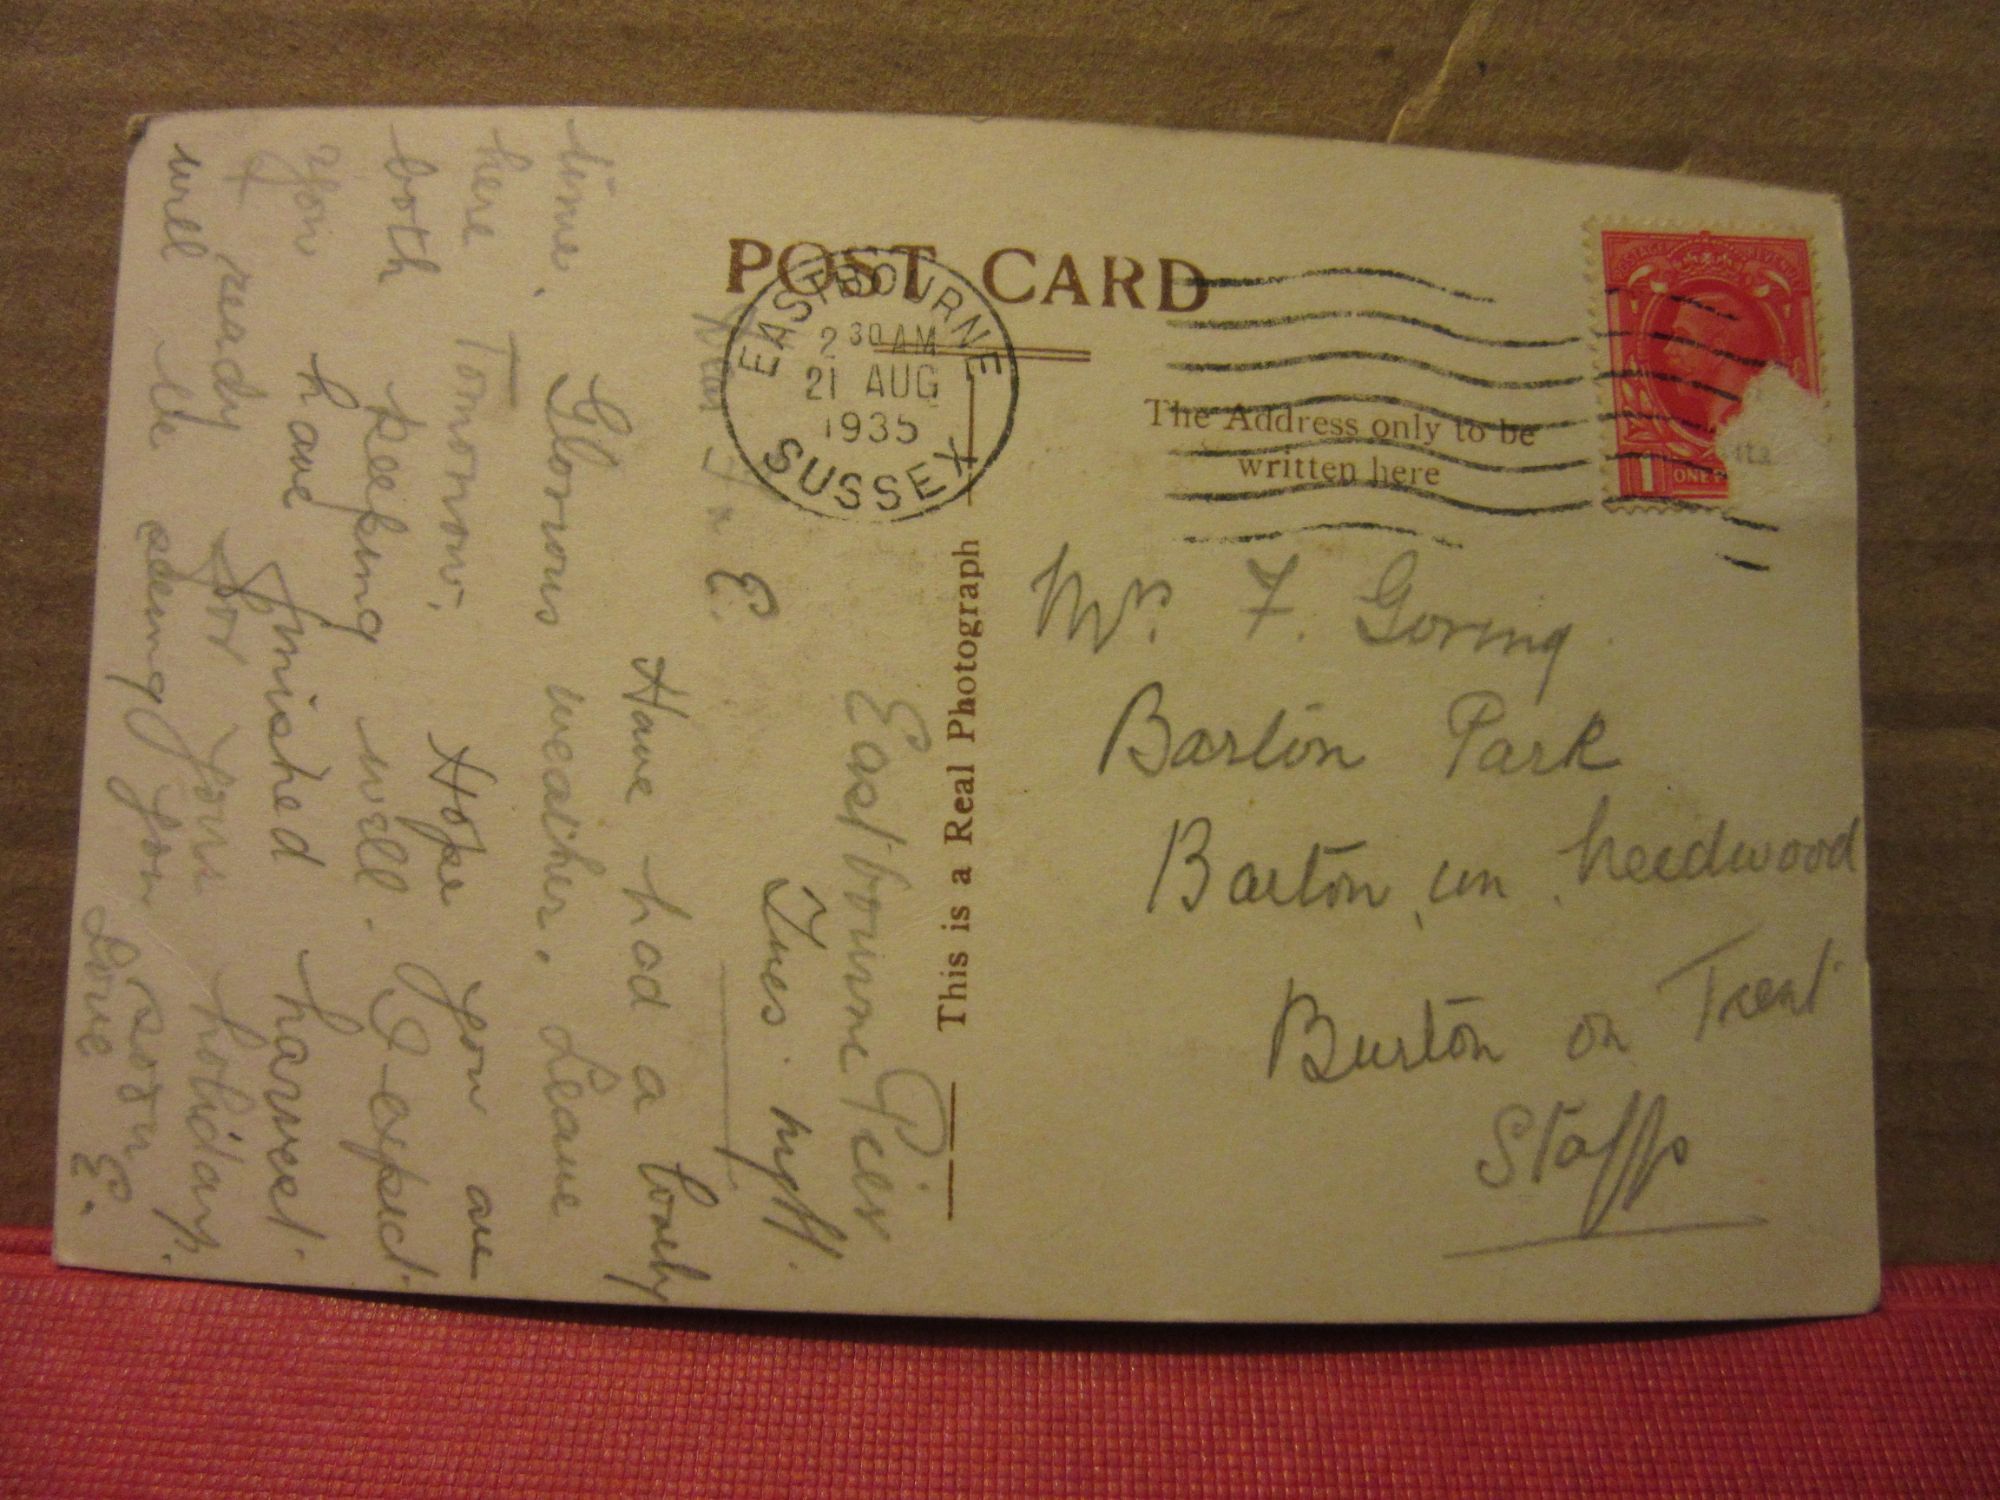 POST CARD
EASTBOURNE
2 30 AM
21 AUG
1935
SUSSEX
The Address only to be
written here
1 ONE P
This is a Real Photograph
Mrs. F. Goring
Barton Park
Barton un. Needwood
Burton on Trent
Staffs
Eastbourne Pier
Tues. nght.
Dear F & E.
Have had a lovely
time. Glorious weather. Leave
here Tomorrow. Hope you are
both keeping well. I expect
you have finished harvest
& ready for your holiday.
will be seeing you soon
Love E.